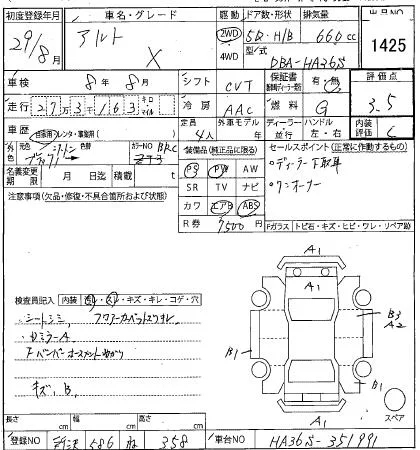 初度登録年月 車名・グレード 駆動 ドア数・形状 排気量 出品NO
29/8月 アルト X 2WD 4WD 5D・H/B 660cc 1425
型式 DBA-HA36S
車検 8年8月 シフト CVT 保証書 有・無 評価点 3.5
走行 27,3163 キロ マイル 冷房 AAC 燃料 G
車歴 自家用 レンタ・事業用 定員 4人 外車モデル年 ディーラー 並行 ハンドル 左・右 内装評価 C
外色 元色 色替 カラーNO
名義変更期限 月 日迄 積載 t
装備品(純正品に限る)
PS PW AW
SR TV ナビ
カワ エアB ABS
R券 7500円
セールスポイント(正常に作動するもの)
・ディーラー下取車
・ワンオーナー
注意事項(欠品・修復・不具合箇所および状態)
Fガラス トビ石・キズ・ヒビ・ワレ・リペア跡
検査員記入 内装 汚レ・スレ・キズ・キレ・コゲ・穴
・シートシミ フロアーカーペットスリキレ
・ロミラーA
キズ、B、
A1
A1
B3
A2
B1
B1
A1
スペア
長さ cm 幅 cm 高さ cm
登録NO 所沢 586 ね 358 車台NO HA36S-351991